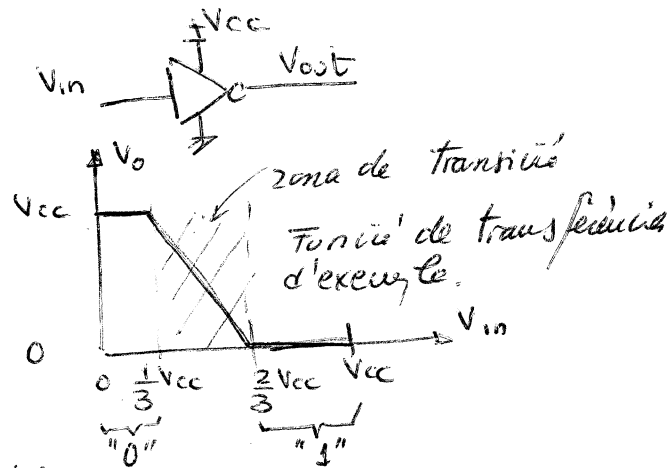 Vcc
Vin Vout
Vo
zona de transició
Vcc
Funció de transferència
d'exemple.
Vin
0
0 1/3 Vcc 2/3 Vcc Vcc
"0" "1"